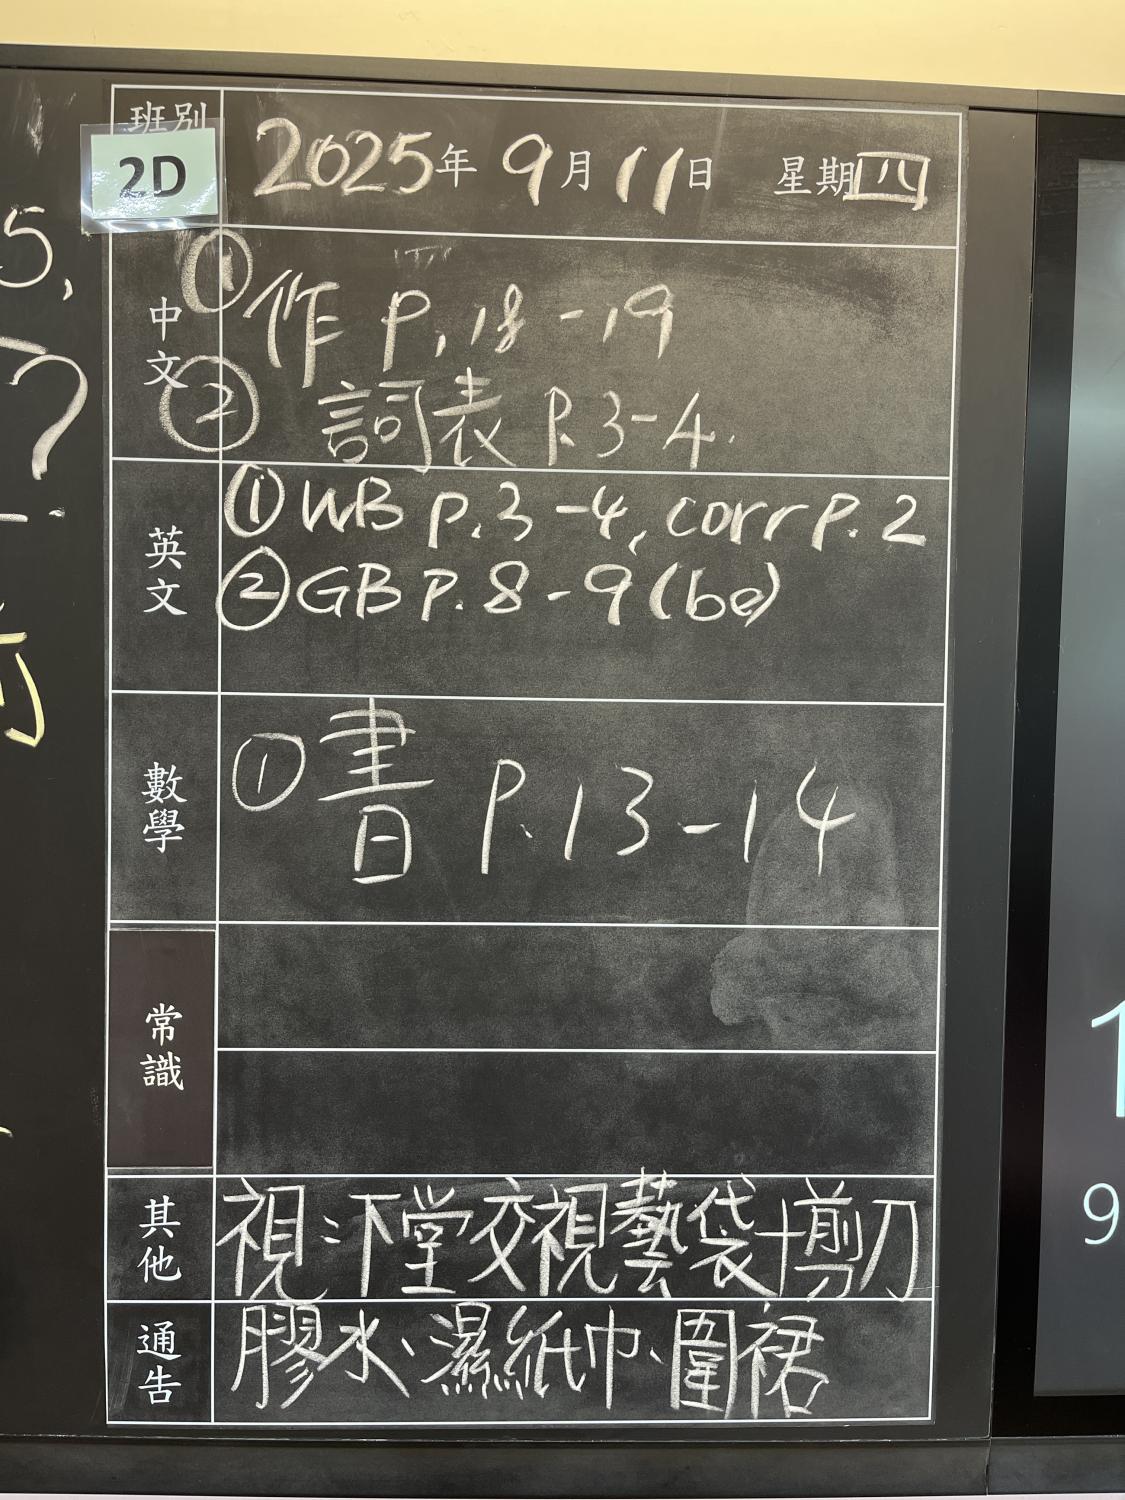 班別
2D
2025年 9月11日 星期四
中文
① 作 P.18-19
② 詞表 P.3-4.
英文
① WB p.3-4, corr p.2
② GB p.8-9 (be)
數學
① 書 P.13-14
常識
其他
視:下堂交視藝袋+剪刀
通告
膠水、濕紙巾、圍裙
5,
?
1
9